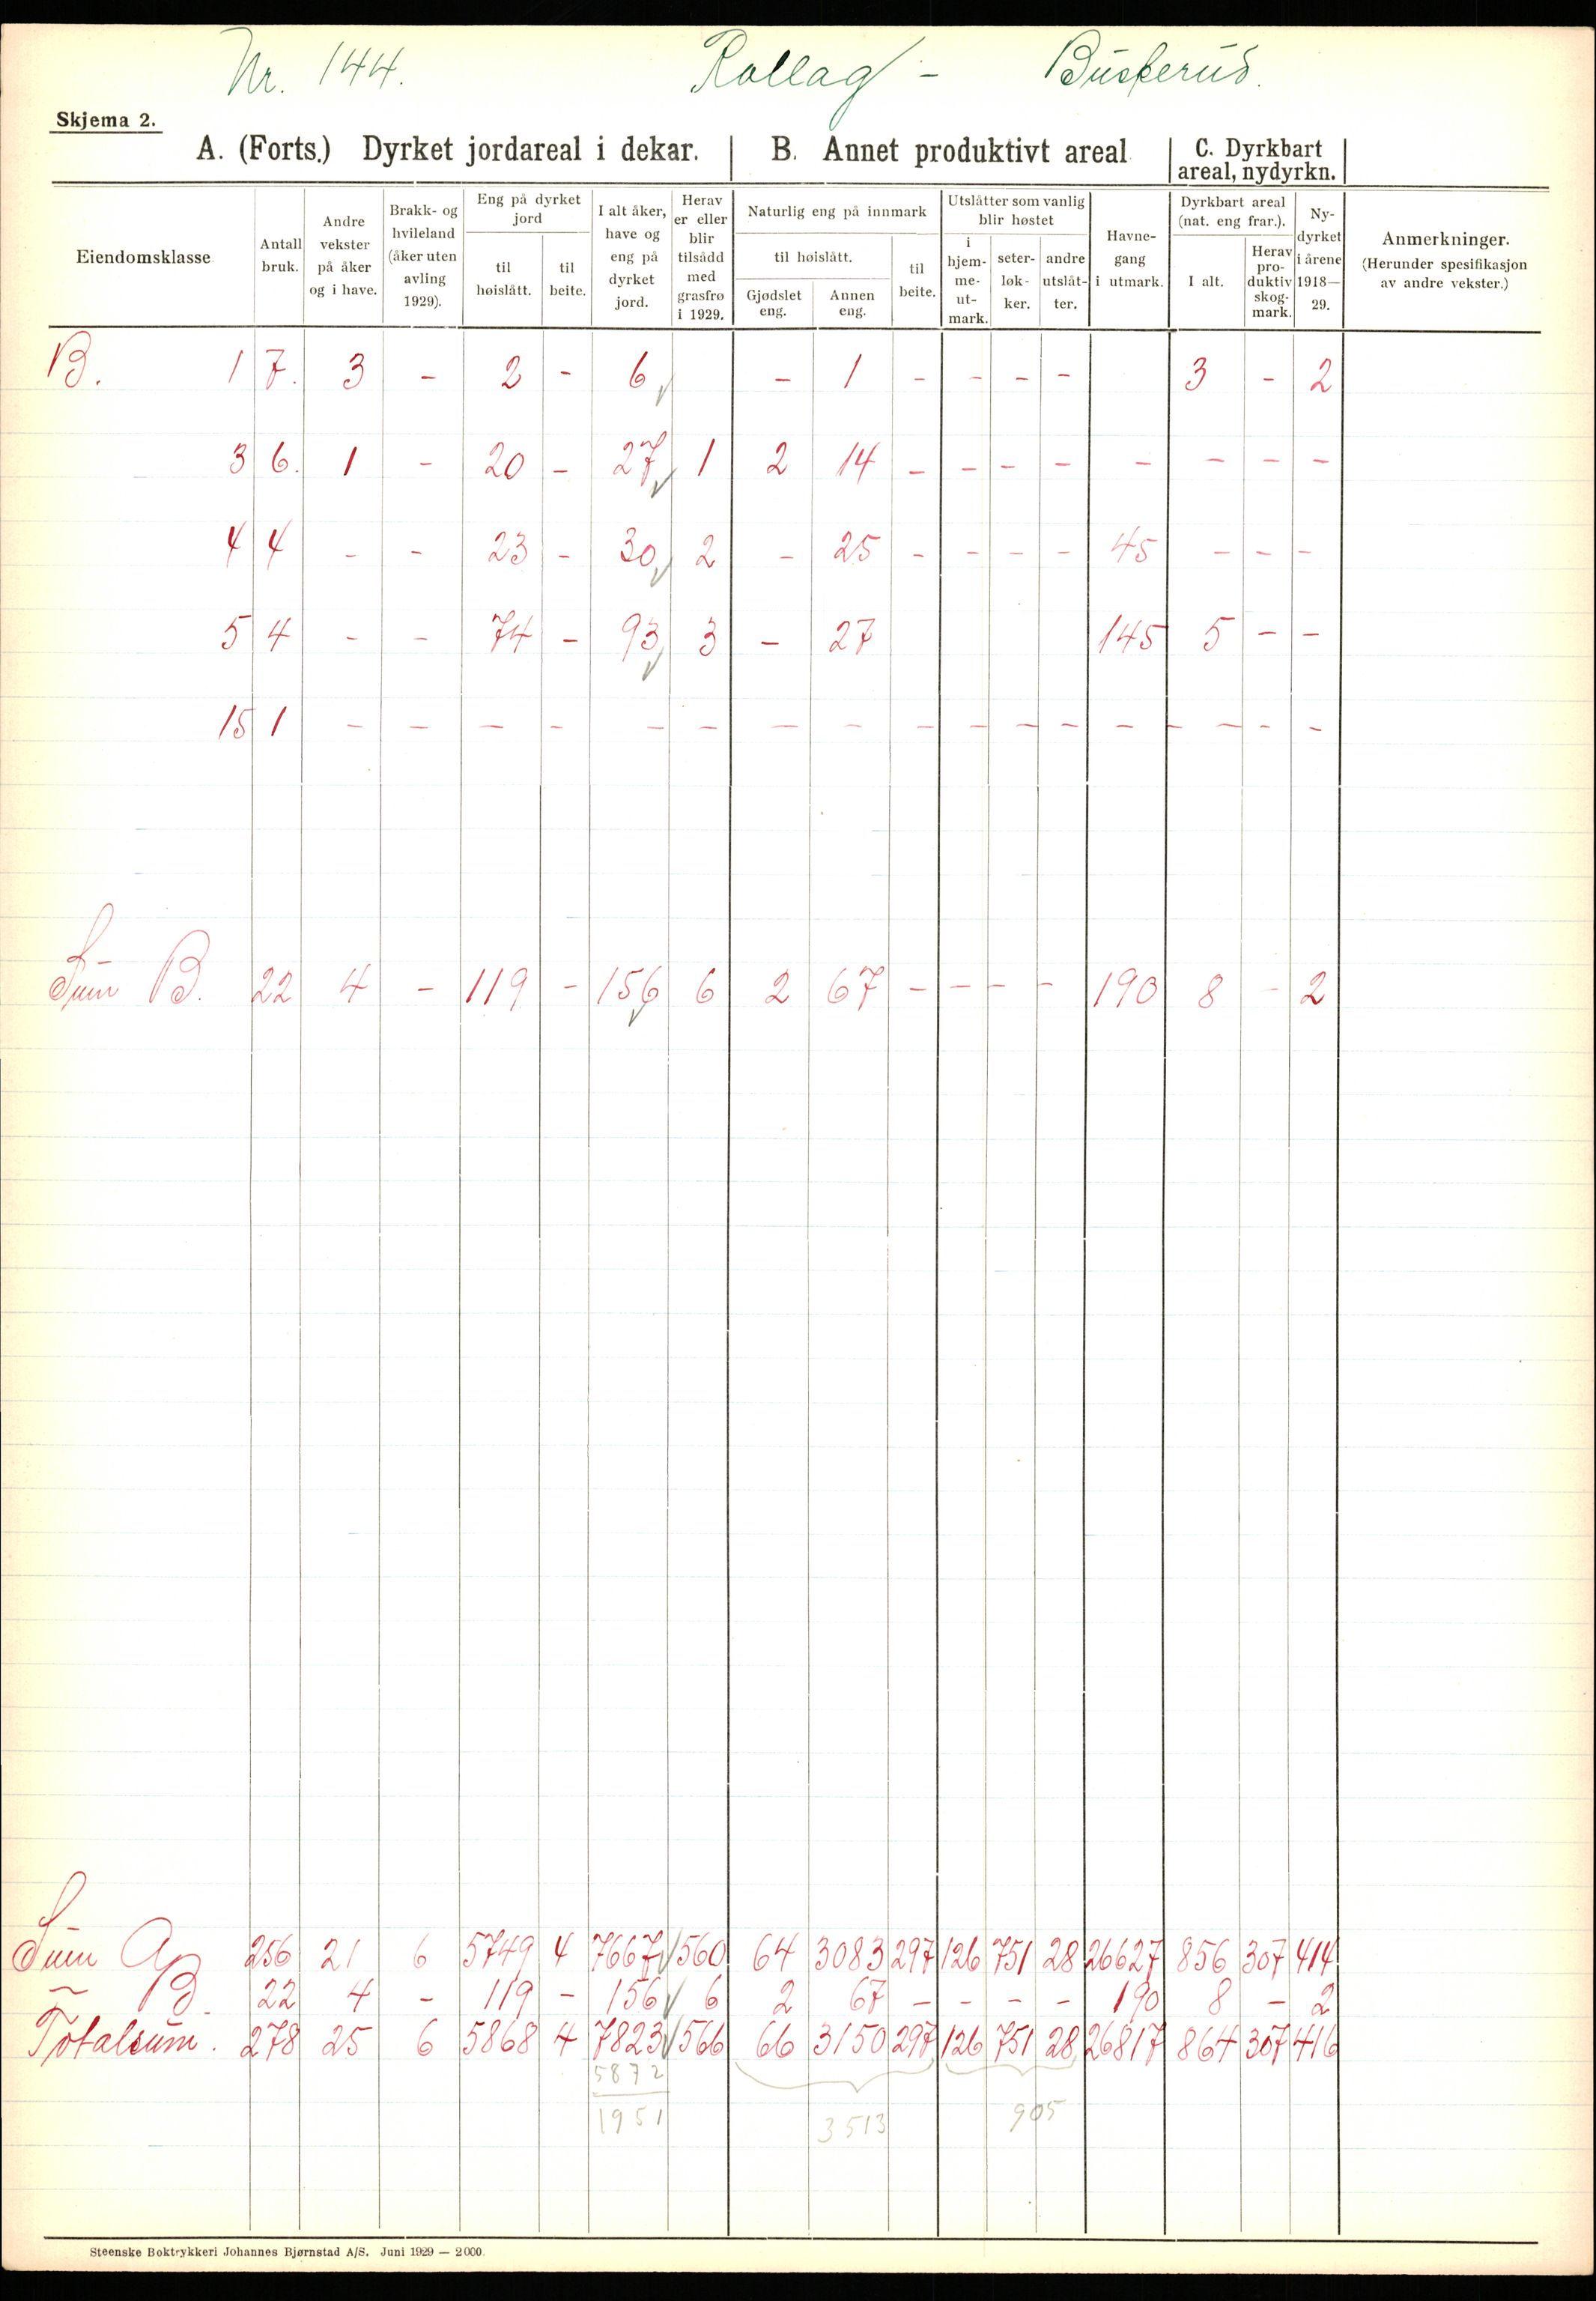 Nr. 144. Rollag - Buskerud.
Skjema 2.
A. (Forts.) Dyrket jordareal i dekar. B. Annet produktivt areal C. Dyrkbart areal, nydyrkn.
Eiendomsklasse
Antall bruk.
Andre vekster på åker og i have.
Brakk- og hvileland (åker uten avling 1929).
Eng på dyrket jord
til høislått.
til beite.
I alt åker, have og eng på dyrket jord.
Herav er eller blir tilsådd med grasfrø i 1929.
Naturlig eng på innmark
til høislått.
Gjødslet eng.
Annen eng.
til beite.
Utslåtter som vanlig blir høstet
i hjem-me-ut-mark.
seter-løk-ker.
andre utslåt-ter.
Havne-gang i utmark.
Dyrkbart areal (nat. eng frar.).
I alt.
Herav pro-duktiv skog-mark.
Ny-dyrket i årene 1918—29.
Anmerkninger.
(Herunder spesifikasjon av andre vekster.)
B. 1 7. 3 - 2 - 6 - 1 - - - - 3 - 2
3 6. 1 - 20 - 27 1 2 14 - - - - - - - -
4 4 - - 23 - 30 2 - 25 - - - - 45 - - -
5 4 - - 74 - 93 3 - 27 145 5 - -
15 1 - - - - - - - - - - - - - - - - -
Sum B. 22 4 - 119 - 156 6 2 67 - - - - 190 8 - 2
Sum A 256 21 6 5749 4 7667 560 64 3083 297 126 751 28 26627 856 307 414
~ B. 22 4 - 119 - 156 6 2 67 - - - - 190 8 - 2
Totalsum. 278 25 6 5868 4 7823 566 66 3150 297 126 751 28 26817 864 307 416
5872
1951 3513 905
Steenske Boktrykkeri Johannes Bjørnstad A/S. Juni 1929 — 2000.